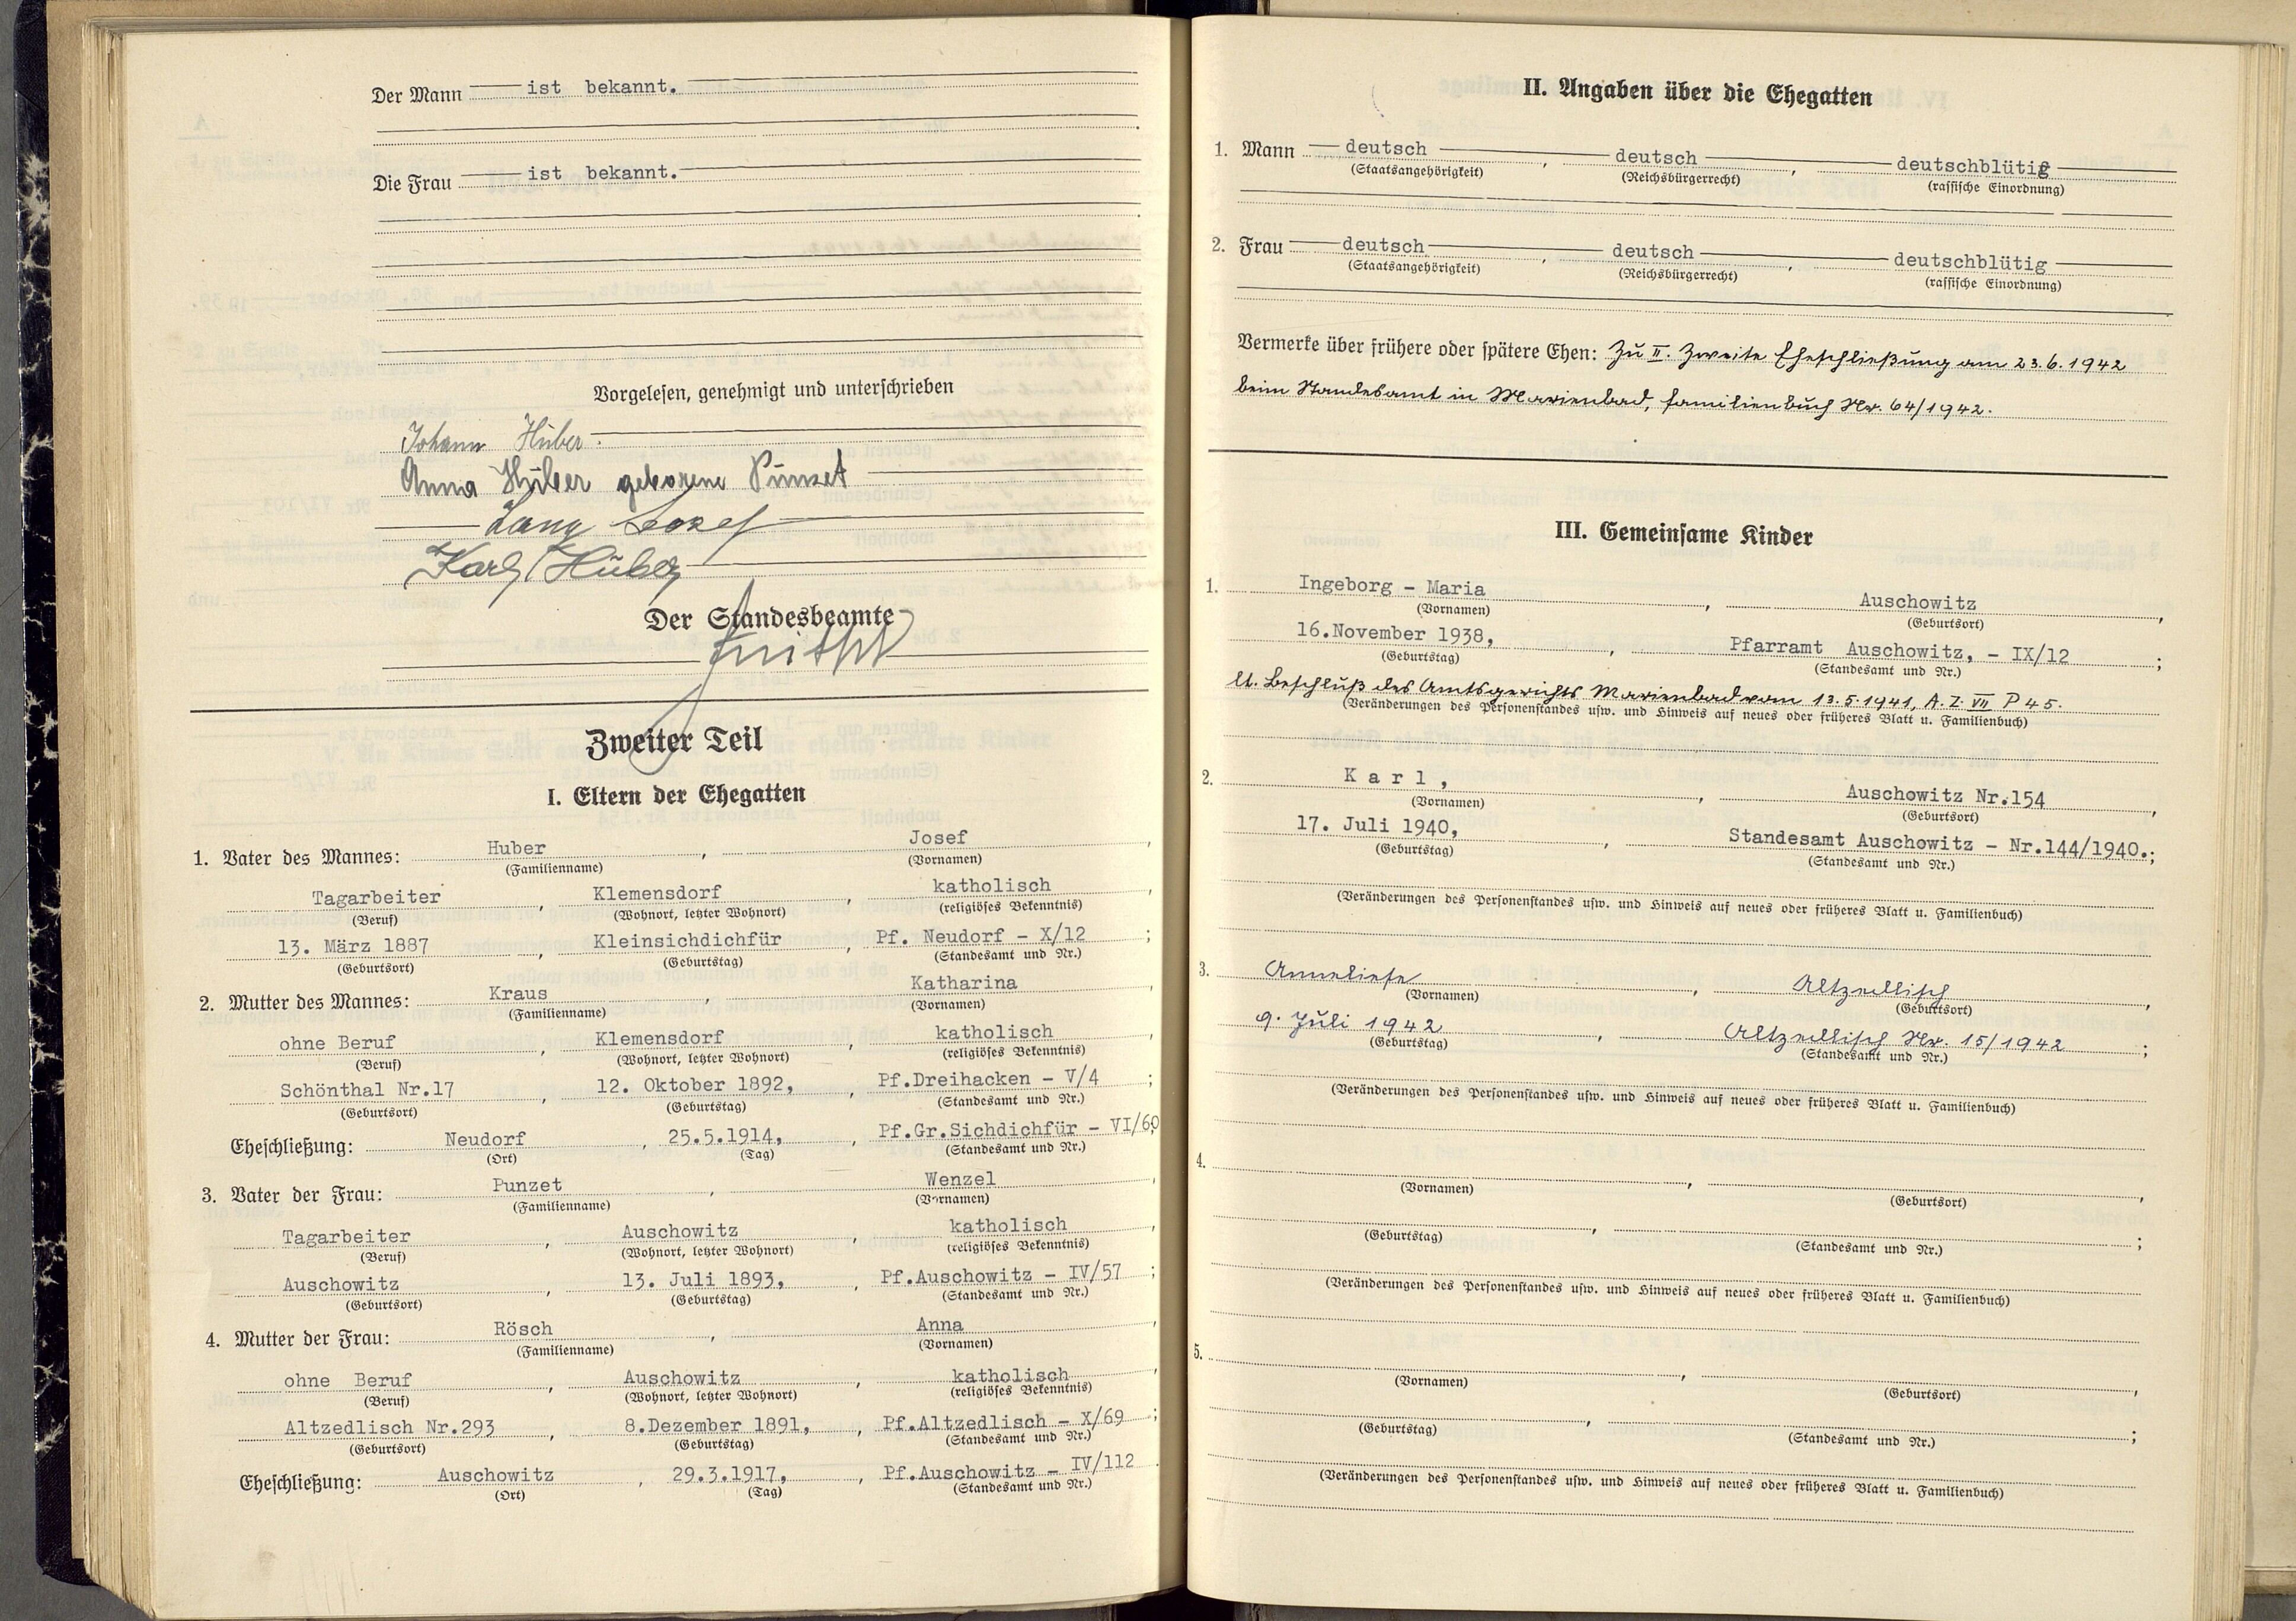 Der Mann ist bekannt.
Die Frau ist bekannt.
Vorgelesen, genehmigt und unterschrieben
Johann Huber.
Anna Huber geborene Punzet
Lang Josef
Karl Huber
Der Standesbeamte
Zweiter Teil
I. Eltern der Ehegatten
1. Vater des Mannes: Huber, Josef,
(Familienname) (Vornamen)
Tagarbeiter, Klemensdorf, katholisch,
(Beruf) (Wohnort, letzter Wohnort) (religiöses Bekenntnis)
13. März 1887, Kleinsichdichfür, Pf. Neudorf - X/12;
(Geburtsort) (Geburtstag) (Standesamt und Nr.)
2. Mutter des Mannes: Kraus, Katharina,
(Familienname) (Vornamen)
ohne Beruf, Klemensdorf, katholisch,
(Beruf) (Wohnort, letzter Wohnort) (religiöses Bekenntnis)
Schönthal Nr.17, 12. Oktober 1892,, Pf.Dreihacken - V/4;
(Geburtsort) (Geburtstag) (Standesamt und Nr.)
Eheschließung: Neudorf, 25.5.1914,, Pf.Gr.Sichdichfür - VI/60
(Ort) (Tag) (Standesamt und Nr.)
3. Vater der Frau: Punzet, Wenzel,
(Familienname) (Vornamen)
Tagarbeiter, Auschowitz, katholisch,
(Beruf) (Wohnort, letzter Wohnort) (religiöses Bekenntnis)
Auschowitz, 13. Juli 1893,, Pf.Auschowitz - IV/57;
(Geburtsort) (Geburtstag) (Standesamt und Nr.)
4. Mutter der Frau: Rösch, Anna,
(Familienname) (Vornamen)
ohne Beruf, Auschowitz, katholisch,
(Beruf) (Wohnort, letzter Wohnort) (religiöses Bekenntnis)
Altzedlisch Nr.293, 8.Dezember 1891,, Pf.Altzedlisch - X/69;
(Geburtsort) (Geburtstag) (Standesamt und Nr.)
Eheschließung: Auschowitz, 29.3.1917,, Pf.Auschowitz - IV/112.
(Ort) (Tag) (Standesamt und Nr.)
II. Angaben über die Ehegatten
1. Mann deutsch, deutsch, deutschblütig
(Staatsangehörigkeit) (Reichsbürgerrecht) (rassische Einordnung)
2. Frau deutsch, deutsch, deutschblütig
(Staatsangehörigkeit) (Reichsbürgerrecht) (rassische Einordnung)
Vermerke über frühere oder spätere Ehen: Zu II. Zweite Eheschließung am 23.6.1942
beim Standesamt in Marienbad, Familienbuch Nr. 64/1942.
III. Gemeinsame Kinder
1. Ingeborg - Maria, Auschowitz,
(Vornamen) (Geburtsort)
16.November 1938,, Pfarramt Auschowitz, - IX/12;
(Geburtstag) (Standesamt und Nr.)
lt. Beschluß des Amtsgerichts Marienbad vom 13.5.1941, A.Z. VII P 45.
(Veränderungen des Personenstandes usw. und Hinweis auf neues oder früheres Blatt u. Familienbuch)
2. Karl,, Auschowitz Nr.154,
(Vornamen) (Geburtsort)
17. Juli 1940,, Standesamt Auschowitz - Nr.144/1940.;
(Geburtstag) (Standesamt und Nr.)
(Veränderungen des Personenstandes usw. und Hinweis auf neues oder früheres Blatt u. Familienbuch)
3. Anneliese, Altzedlisch,
(Vornamen) (Geburtsort)
9. Juli 1942, Altzedlisch Nr. 15/1942;
(Geburtstag) (Standesamt und Nr.)
(Veränderungen des Personenstandes usw. und Hinweis auf neues oder früheres Blatt u. Familienbuch)
4.
(Vornamen) (Geburtsort)
(Geburtstag) (Standesamt und Nr.)
(Veränderungen des Personenstandes usw. und Hinweis auf neues oder früheres Blatt u. Familienbuch)
5.
(Vornamen) (Geburtsort)
(Geburtstag) (Standesamt und Nr.)
(Veränderungen des Personenstandes usw. und Hinweis auf neues oder früheres Blatt u. Familienbuch)